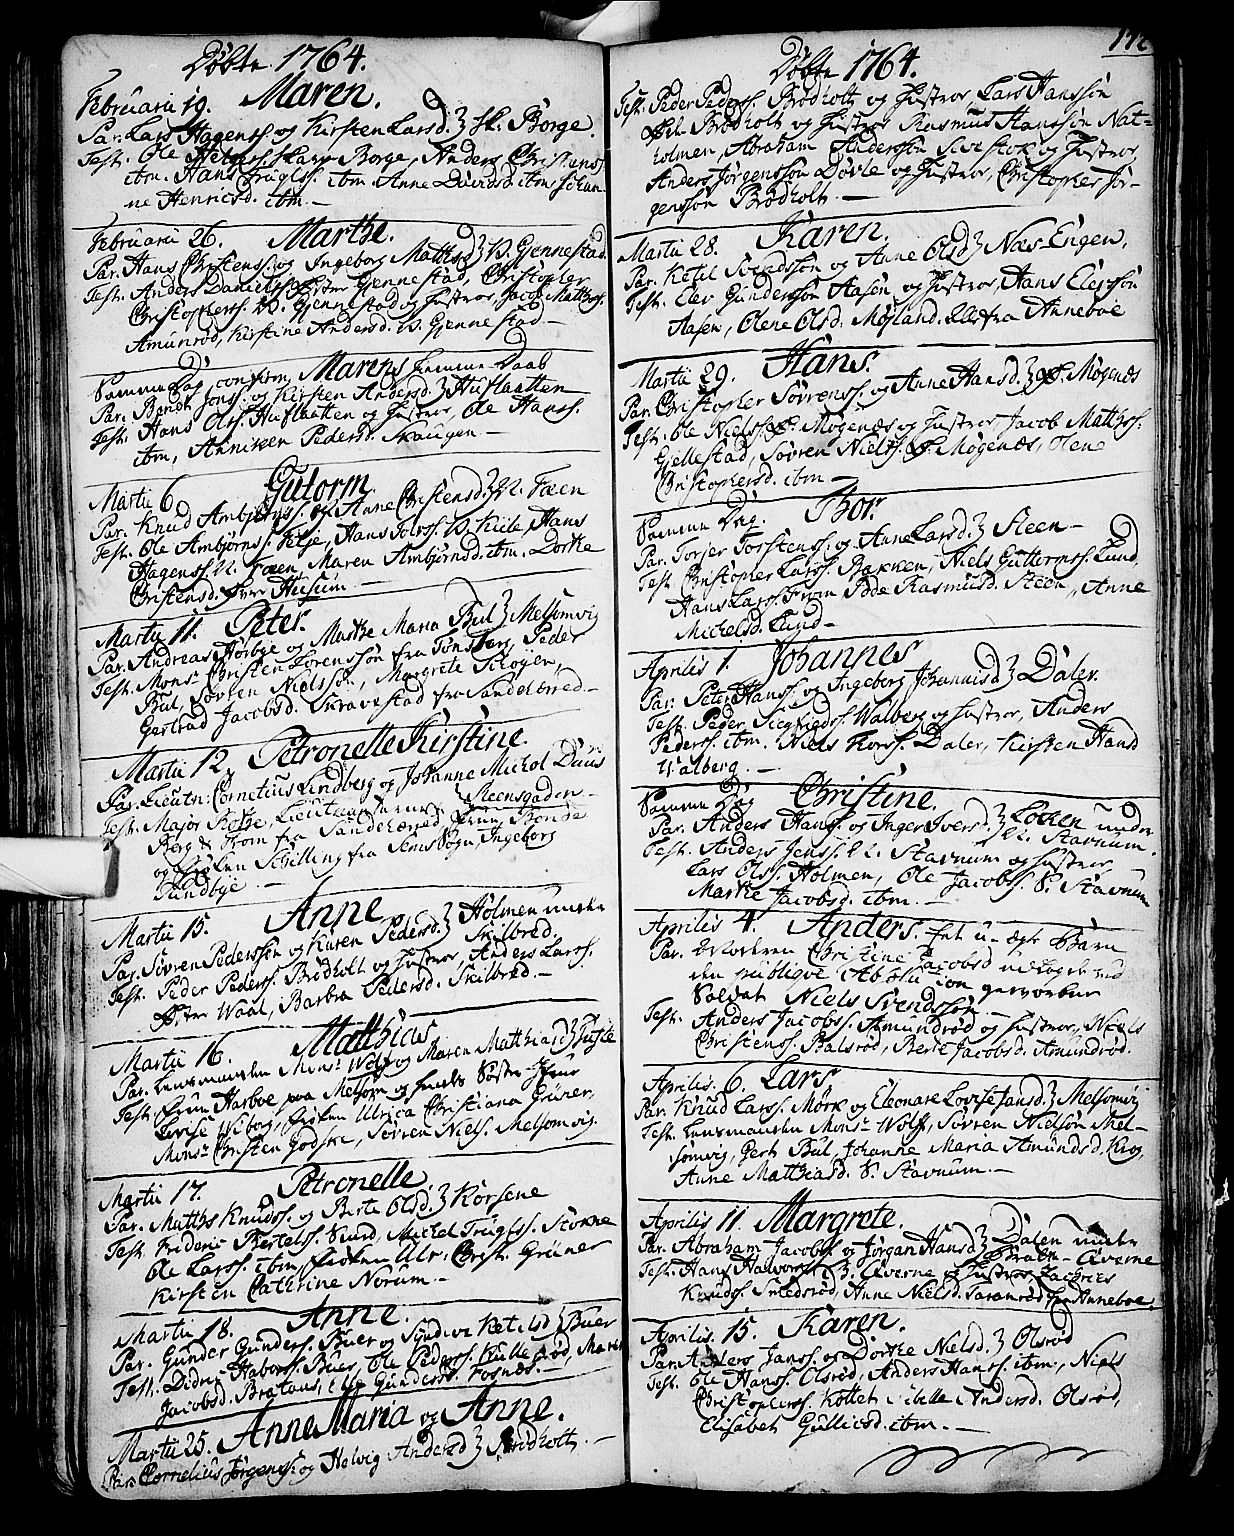 Døbte 1764.
Februarii 19. Maren.
Par. Lars Hagenss. og Kirsten Larsd. Borge.
Test. Ole Borge, Anders Christenss.
ibm. Hans Truglss. ibm. Anne Davidsd. ibm. Johan-
ne Henricsd. ibm. —
Februarii 26. Marthe.
Par. Hans Christenss. og Ingeborg Matthsd. V. Gjennestad.
Test. Anders Danielss. Gjennestad, Christopher
Christopherss. V. Gjennestad og hustroe, Jacob Matthss.
Amunrød, Kirstine Andersd. V. Gjennestad —
Samme Dag, confirm. Marens hiemme Daab
Par. Bendt Jonss. og Kirsten Andersd. Huflaatten
Test. Hans Olss. Huflaatten og hustroe, Ole Hanss.
ibm, Anniken Pedersd. Skaugen —
Martii 6. Gutorm
Par. Knud Ambjørnss. og Anne Christensd. N. Faen
Test. Ole Ambjørnss. Felje, Hans Hans
Hagenss. N. Faen, Maren Ambjørnsd. ibm. Dorthe
Christensd. Husum —
Martii 11. Peter.
Par. Andreas Hørbye og Marthe Maria Bul Melsomvig
Test. Monsr. Christen Lorenssøn fra Tønsberg, Peder
Bul, Søren Nielssøn, Margrete
Gertrud Jacobsd. Skravestad fra Sandeherred —
Martii 12. Petronelle Kirstine.
Par. Lieutn: Cornelius Lindberg og Johanne Michol Duus
Steensgaden —
Test. Major
Berg & Horn fra Sandeherred, Bonde
og Frøken Schilling fra Sems Sogn, Ingeborg
Sundbye. —
Martii 15. Anne
Par. Søvren Pederssøn og Karen Pedersd. Holmen under
Skilbred.
Test. Peder Pederss. Brødholt og hustroe, Anders Larss.
Waal, Barbra Pedersd. Skilbred. —
Martii 16. Matthias
Par. Lensmanden Monsr. Wolf og Maren Matthiasd.
Test. Harboe paa Melsom og hendes Søster
Lovise Wiborg, Frøken Ulrica Christiana Grüner,
Monsr. Christen Godske, Søvren Nielss. Melsomvig.
Martii 17. Petronelle.
Par. Matths Knudss. og Berte Olsd. Korsene
Test. Frideric Bertelss. Sund, Michel Truglss.
Ole Larss. ibm, Frøken Ulr. Christ. Grüner
Kirsten Cathrine Norum. —
Martii 18. Anne.
Par. Gunder Gunderss. Buer og Synneve Ketilsd. Buer
Test. Buer, Ole Pederss. Maren
Jacobsd. Gundersd. Fosnæs. —
Martii 25. Anne Maria og Anne.
Par. Cornelius Jørgenss. og Helvig Andersd. Brødholt. —
172
Døbte 1764.
Test. Peder Pederss. Brødholt og hustroe Lars Hanssøn
Brødholt og hustroe Rasmus Hanssøn Nat-
holmen, Abraham Anderssøn og hustroe,
Anders Jørgenssøn Døvle og hustroe, Christopher Jør-
genssøn Brødholt. —
Martii 28. Karen.
Par. Ketil Svendssøn og Anne Olsd. Næs-Engen,
Test. Elev Gunderssøn Aasen og hustroe, Hans Elefssøn
Aasen, Olene Olsd. Møjland. alle fra Anneboe
Martii 29. Hans.
Par. Christopher Søvrenss. og Anne Hansd. Møgenæs
Test. Ole Nielss. Møgenæs og hustroe Jacob Matthss.
Gjellestad, Søvren Nielss. Møgenæs, Olene
Christophersd. ibm —
Samme Dag. Thor.
Par. Torjer Torstenss. og Anne Larsd. Steen —
Test. Christopher Larss. Bakken, Niels Guttormss. Lund,
Hans Larss. Rasmusd. Steen, Anne
Michelsd. Lund —
Aprilis 1. Johannes
Par. Peter Hanss. og Ingeborg Johannisd. Daler.
Test. Peder Siegfriedss. Walberg og hustroe, Anders
Pederss. ibm. Niels Daler, Kirsten Hansd
Walberg. —
Samme Dag Christine.
Par. Anders Hanss. og Inger Iversd. Løkken under
N. Stavnum.
Test. Anders Jenss. N. Stavnum og hustroe
Lars Olss. Holmen, Ole Jacobss. S. Stavnum
Marthe Jacobsd. ibm. —
Aprilis 4. Anders. Et u-ægte Barn
Par. Moderen Christine Jacobsd
den publique Absolution gevorben
Soldat Niels Svendssøn —
Test. Anders Jacobss. Amundrød og hustroe, Niels
Christenss. Balsrød, Berte Jacobsd. Amundrød.
Aprilis. 6. Lars
Par. Knud Larss. Mørk og Eleonare Lovise Jansd. Melsomvig
Test. Lensmanden Monsr. Wolf, Søvren Nielsøn Mel-
somvig, Gert Bul, Johanne Maria Amundsd. Krog,
Anne Matthiasd. S. Stavnum. —
Aprilis 11. Margrete.
Par. Abraham Jacobss. og Jørgan Hansd. Dalen under
Test. Hans Halvorss. og hustroe Zachries
Knudss. Smedsrød, Anne Nielsd. fra Anneboe.
Aprilis. 15. Karen.
Par. Anders Janss. og Dorthe Nielsd. Olsrød
Test. Ole Hanss. Olsrød, Anders Hanss. ibm, Niels
Christopherss. Kottet Sibelle Andersd. Olsrød,
Elisabet Gulliesd. ibm. —